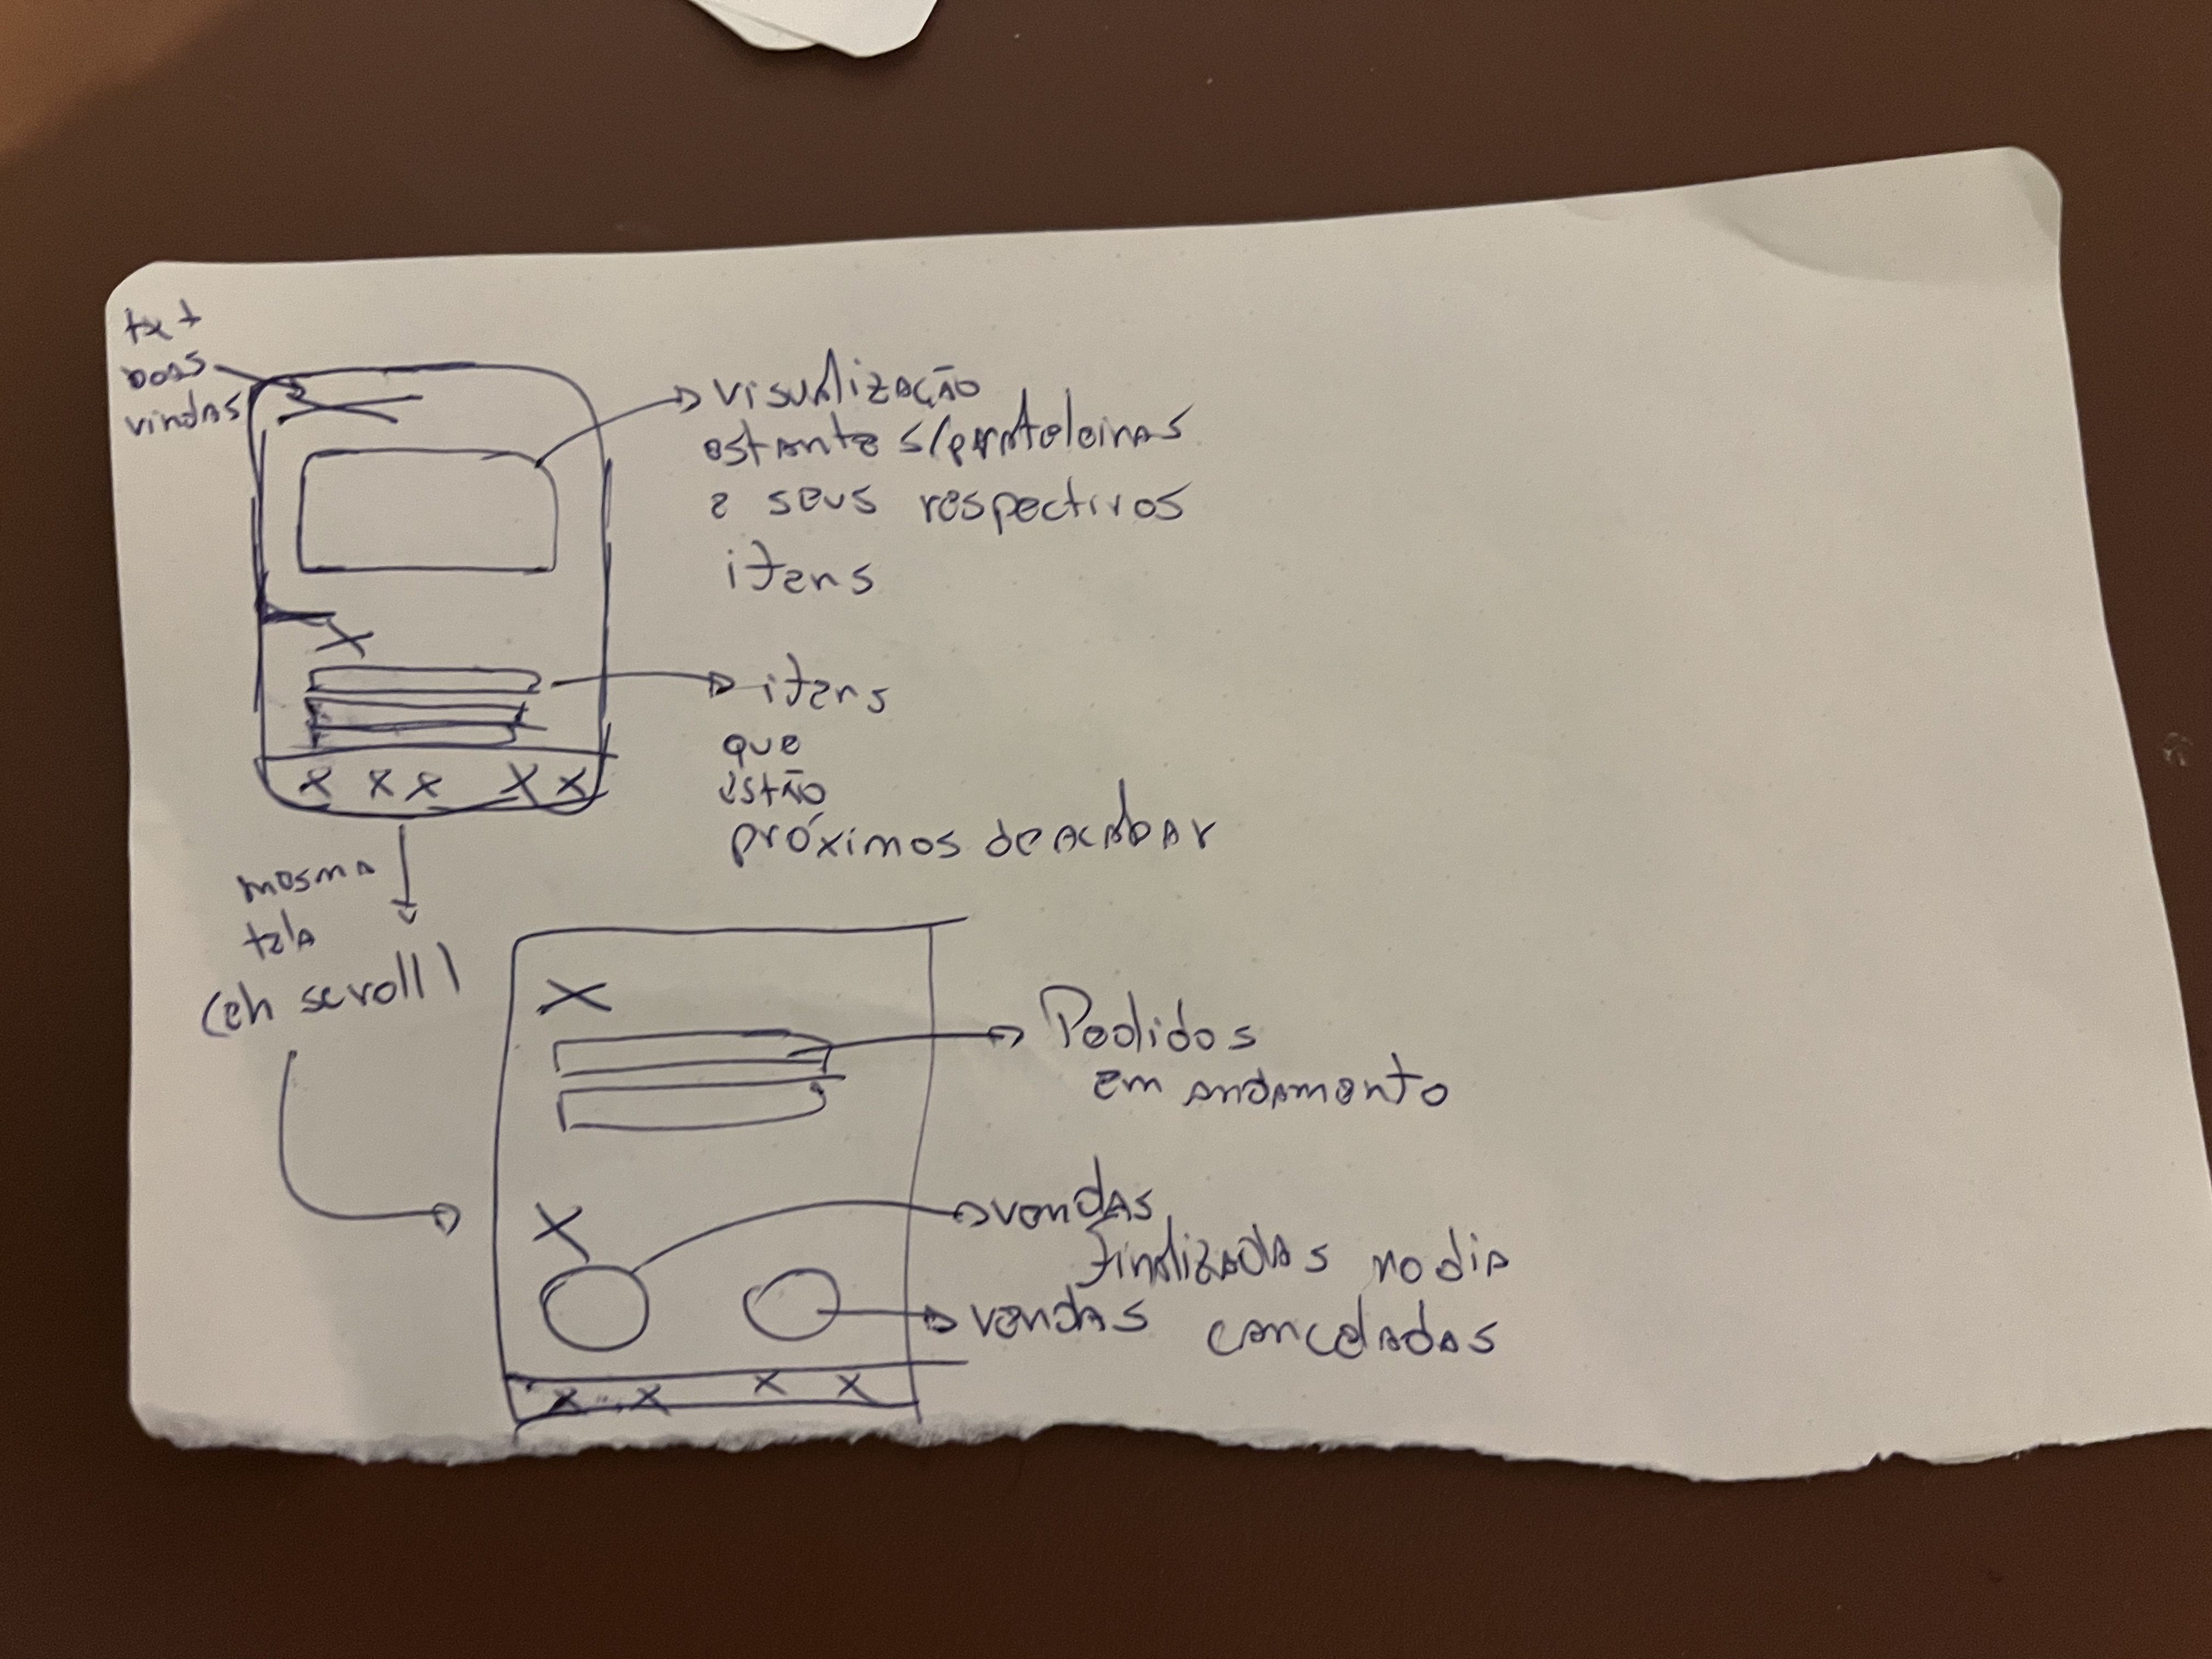 txt
boas
vindas
visualização
estante s/prateleiras
e seus respectivos
itens
itens
que
estão
próximos de acabar
mesma
tela
(eh scroll)
Pedidos
em andamento
vendas
finalizadas no dia
vendas canceladas